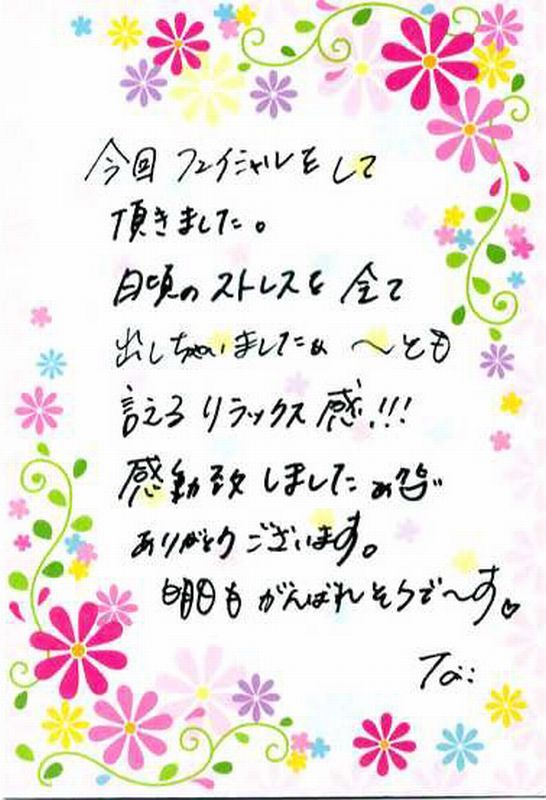 今回フェイシャルをして
頂きました。
日頃のストレスを全て
出しちゃいましたぁ 〜とも
言えるリラックス感!!!
感動致しました
ありがとうございます。
明日もがんばれそうで〜す♡